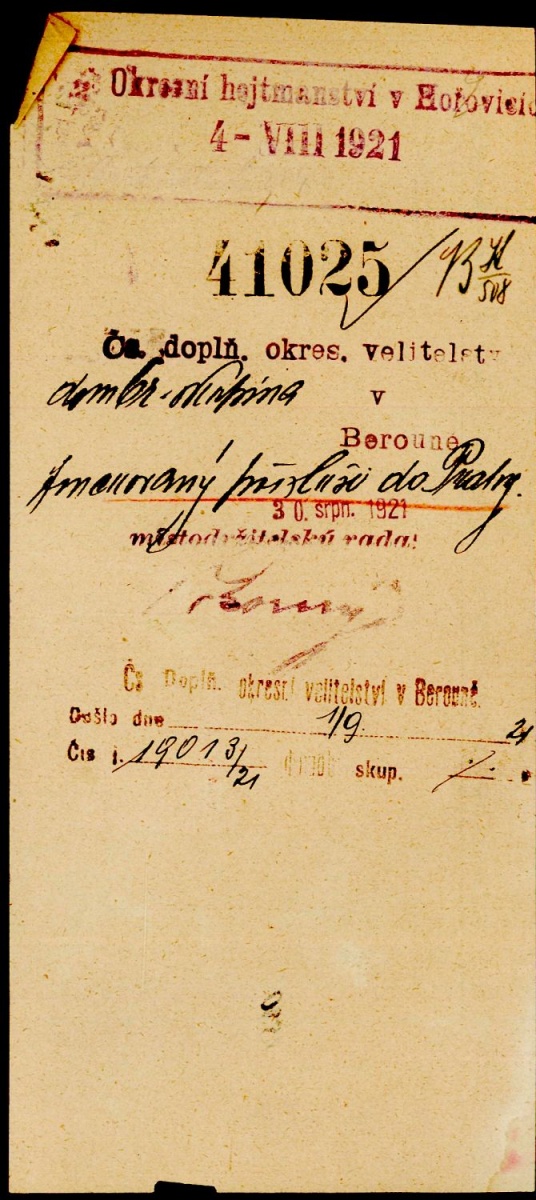 Okresní hejtmanství v Hořovicíc
4 - VIII 1921
41025 / 13
Čs. doplň. okres. velitelstv
v
Berouně
Jmenovaný přísluší do Prahy.
30. srpn. 1921
místodržitelský rada:
Čs Doplň. okresní velitelství v Berouně.
Došlo dne 1/9. 21
Čís j. 19013/21 skup. /.